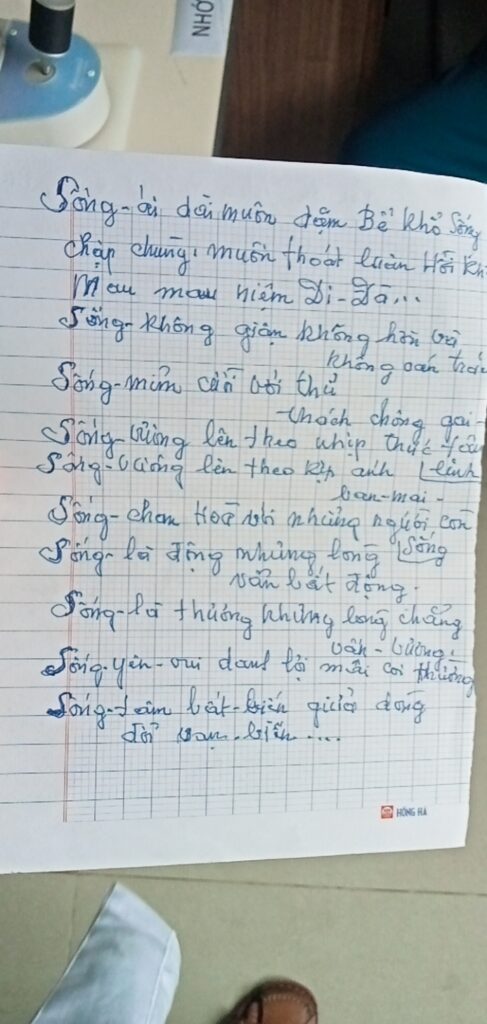 NHƠ
Sống-ải dài muôn dặm Bể khổ Sóng
chập chùng, muốn thoát luân Hồi
Mau mau niệm Di-Đà...
Sống-không giận không hờn
không oán
Sống-mỉm với thử
thách chông gai-
Sống-vương lên theo nhịp thực
Sống-vương lên theo kịp anh linh
ban-mai-
Sống-chan Hoà với những người còn
Sống
Sống-là động nhưng lòng
vẫn bất động.
Sống-là thương nhưng lòng chẳng
vấn-vương.
Sống-yên-vui danh lợi mãi coi thường
Sống-tâm bất-biến giữa dòng
đời vạn-biến....
HỒNG HÀ